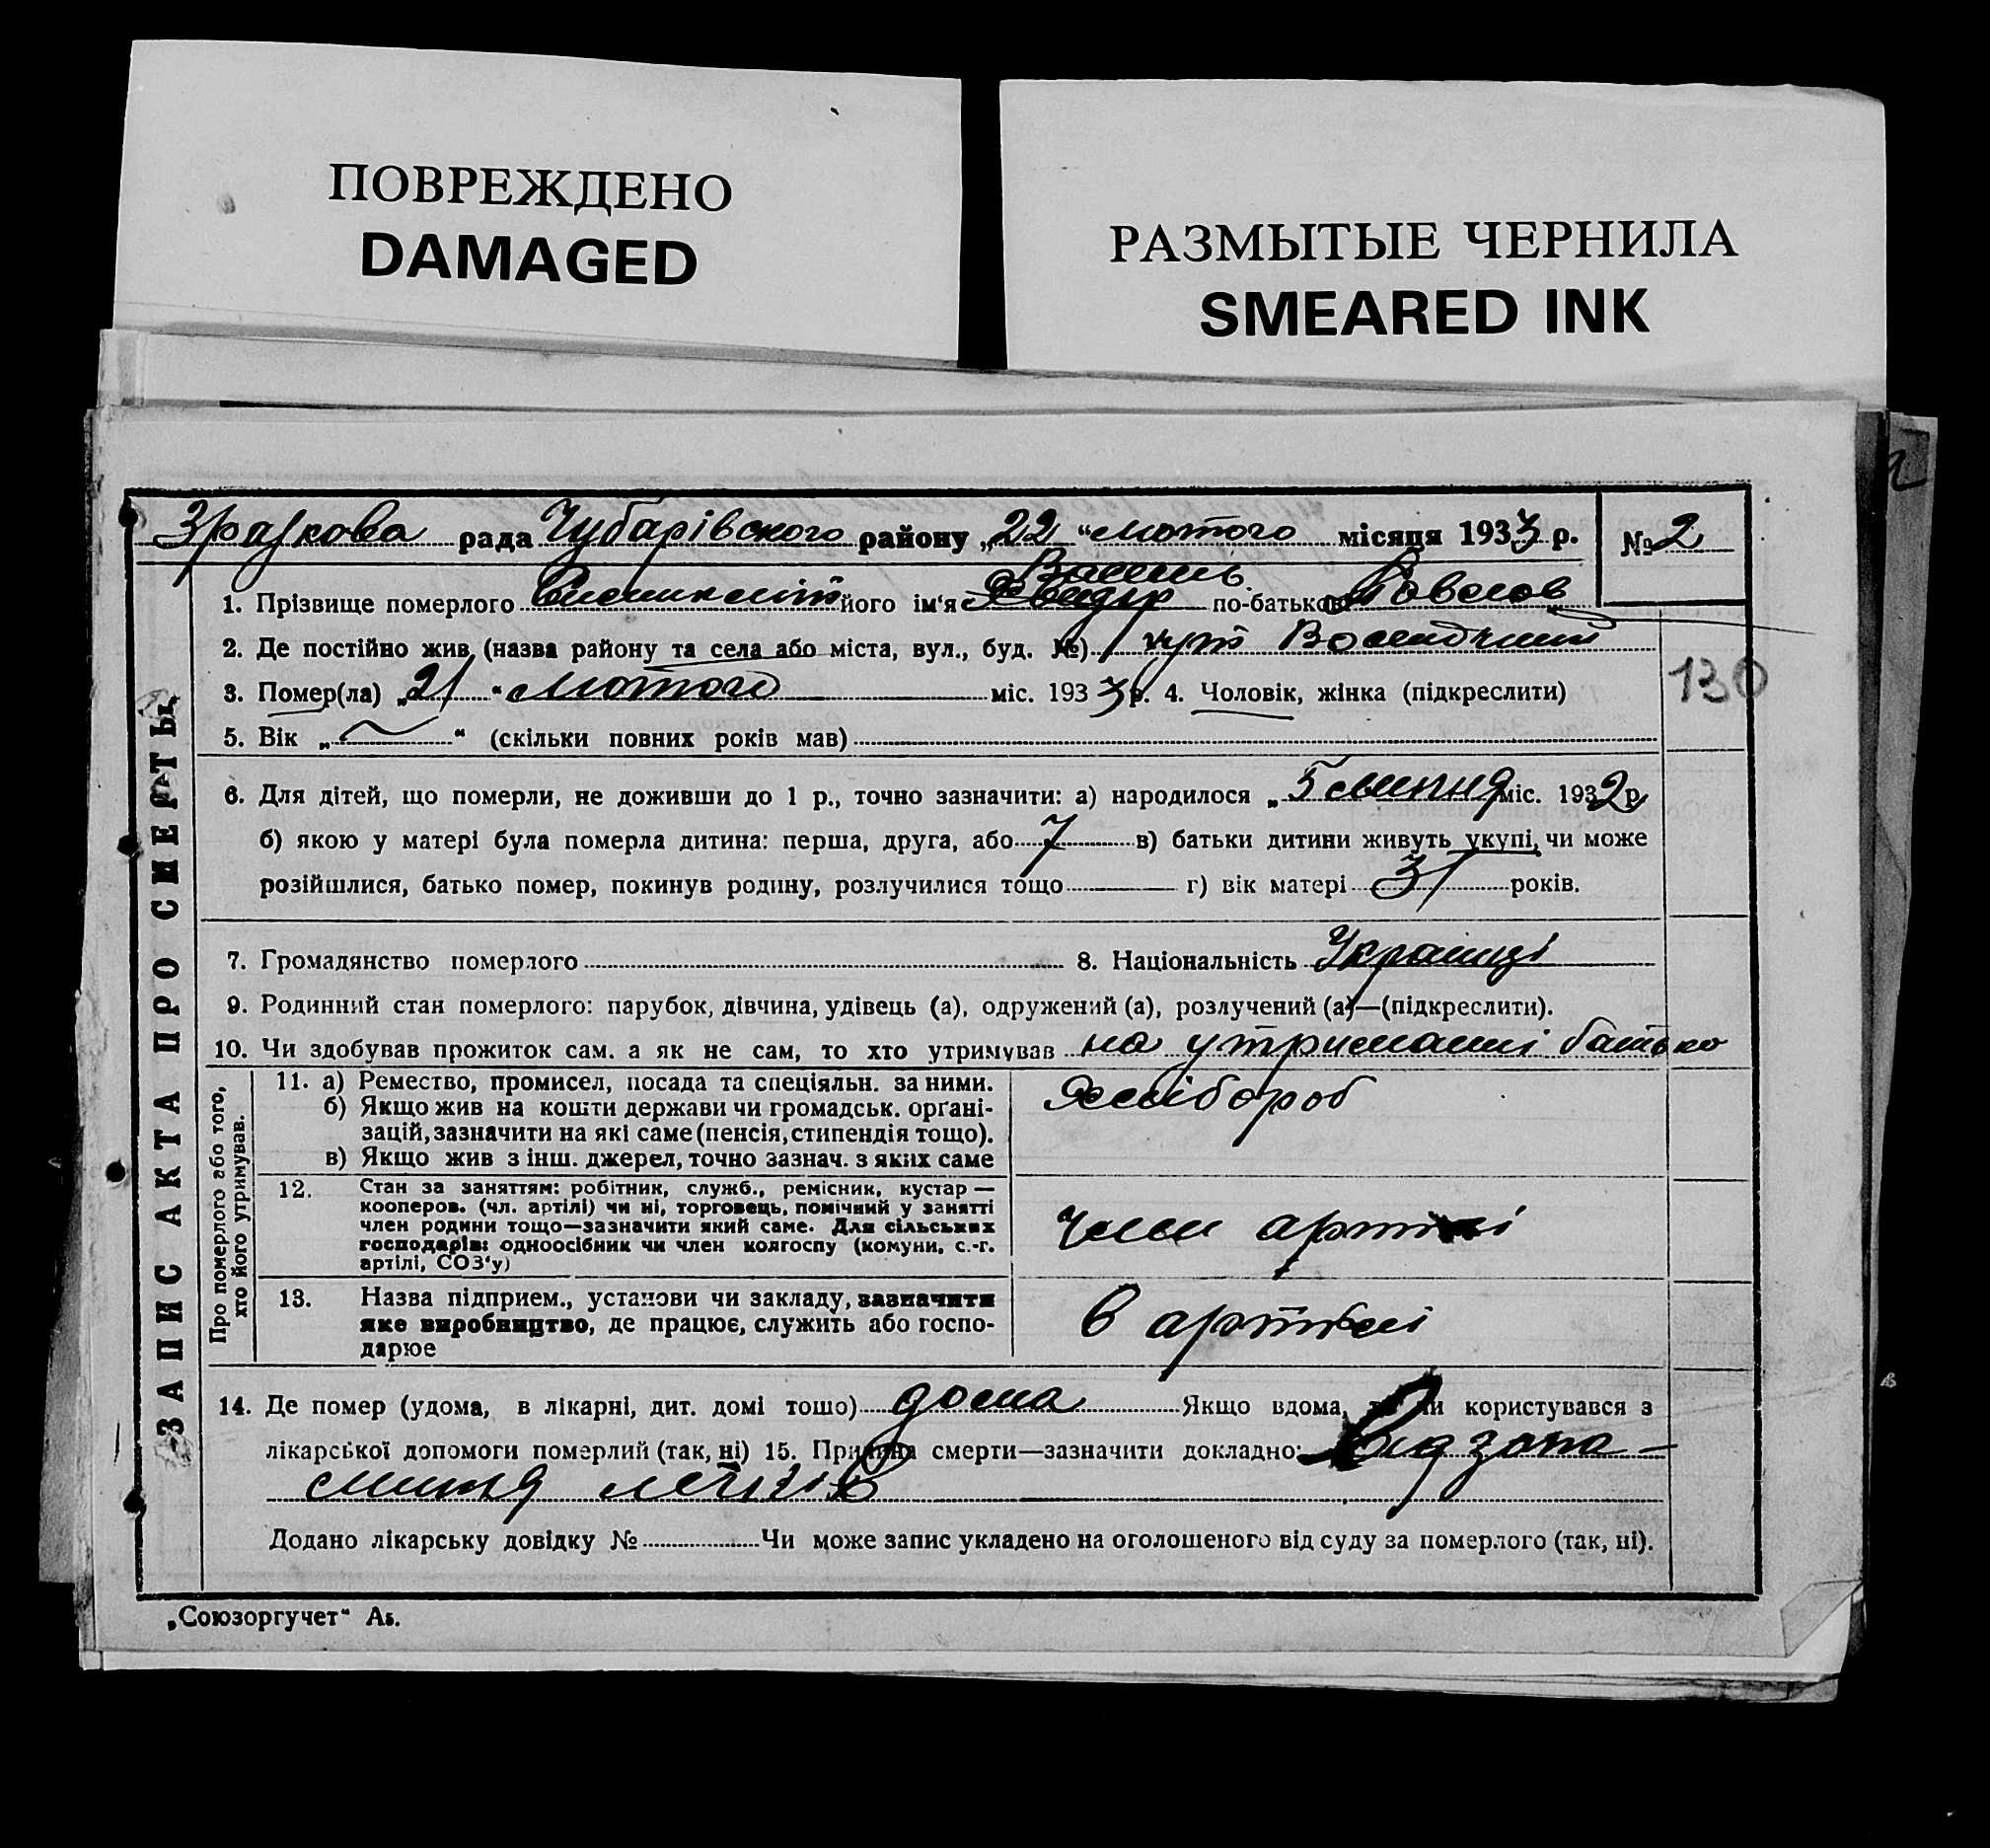 ПОВРЕЖДЕНО
DAMAGED
РАЗМЫТЫЕ ЧЕРНИЛА
SMEARED INK
Зразкова рада Чубарівского району „22“ лютого місяця 1933 р. № 2
Василь
1. Прізвище померлого його ім'я по-батькові Павлов
2. Де постійно жив (назва району та села або міста, вул., буд. №)
3. Помер(ла) „21“ Лютого міс. 1933 р. 4. Чоловік, жінка (підкреслити)
130
5. Вік „ “ (скільки повних років мав)
6. Для дітей, що померли, не доживши до 1 р., точно зазначити: а) народилося „5 липня міс. 1932 р.
б) якою у матері була померла дитина: перша, друга, або 7 в) батьки дитини живуть укупі, чи може
розійшлися, батько помер, покинув родину, розлучилися тощо г) вік матері 31 років.
7. Громадянство померлого 8. Національність Українці
9. Родинний стан померлого: парубок, дівчина, удівець (а), одружений (а), розлучений (а)—(підкреслити).
10. Чи здобував прожиток сам. а як не сам, то хто утримував на утриманні батько
ЗАПИС АКТА ПРО СМЕРТЬ
Про померлого або того,
хто його утримував.
11. а) Ремество, промисел, посада та спеціяльн. за ними.
Хлібороб
б) Якщо жив на кошти держави чи громадськ. орґані-
зацій, зазначити на які саме (пенсія, стипендія тощо).
в) Якщо жив з інш. джерел, точно зазнач. з яких саме
12. Стан за заняттям: робітник, служб., ремісник, кустар —
кооперов. (чл. артілі) чи ні, торговець, помічний у занятті
член родини тощо—зазначити який саме. Для сільських
господарів: одноосібник чи член колгоспу (комуни, с.-г.
артілі, СОЗ'у)
Член артілі
13. Назва підприєм., установи чи закладу, зазначити
яке виробництво, де працює, служить або госпо-
дарює
в артілі
14. Де помер (удома, в лікарні, дит. домі тощо) дома Якщо вдома, то чи користувався з
лікарської допомоги померлий (так, ні) 15. Причина смерти—зазначити докладно: Від запа-
лення легків
Додано лікарську довідку № Чи може запис укладено на оголошеного від суду за померлого (так, ні).
„Союзоргучет“ А5.